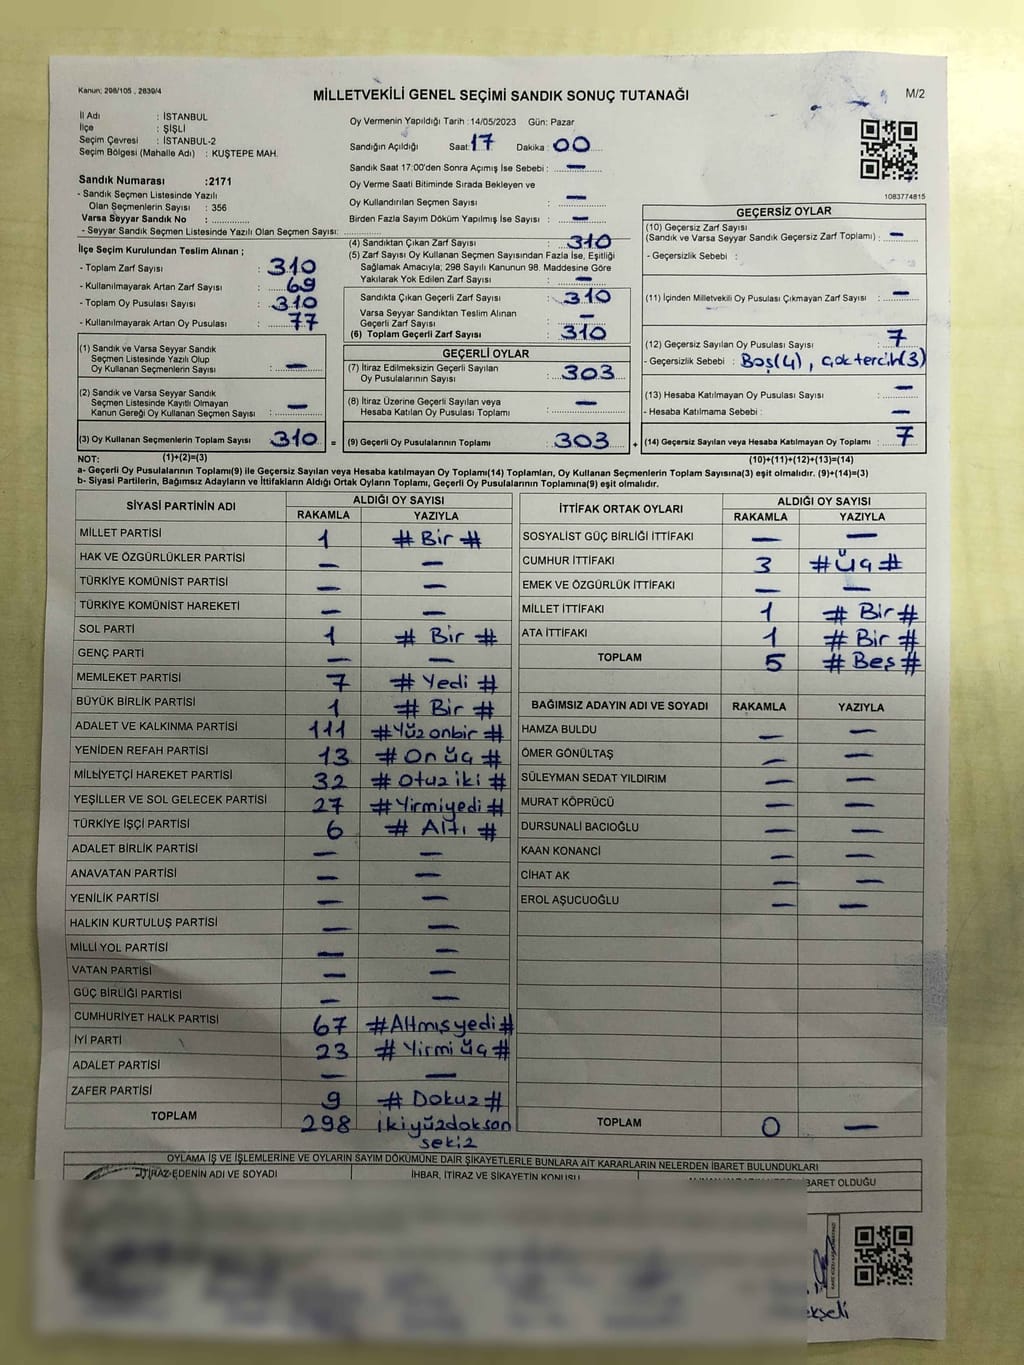 Kanun; 298/105 , 2839/4
MİLLETVEKİLİ GENEL SEÇİMİ SANDIK SONUÇ TUTANAĞI
M/2
İl Adı : İSTANBUL
İlçe : ŞİŞLİ
Seçim Çevresi : İSTANBUL-2
Seçim Bölgesi (Mahalle Adı) : KUŞTEPE MAH.
Sandık Numarası :2171
- Sandık Seçmen Listesinde Yazılı
Olan Seçmenlerin Sayısı : 356
Varsa Seyyar Sandık No :
- Seyyar Sandık Seçmen Listesinde Yazılı Olan Seçmen Sayısı:
Oy Vermenin Yapıldığı Tarih :14/05/2023 Gün: Pazar
Sandığın Açıldığı Saat: 17 Dakika : 00
Sandık Saat 17:00'den Sonra Açımış İse Sebebi : —
Oy Verme Saati Bitiminde Sırada Bekleyen ve
Oy Kullandırılan Seçmen Sayısı : —
Birden Fazla Sayım Döküm Yapılmış İse Sayısı : —
1083774815
İlçe Seçim Kurulundan Teslim Alınan ;
- Toplam Zarf Sayısı : 310
- Kullanılmayarak Artan Zarf Sayısı : 69
- Toplam Oy Pusulası Sayısı : 310
- Kullanılmayarak Artan Oy Pusulası : 77
(1) Sandık ve Varsa Seyyar Sandık
Seçmen Listesinde Yazılı Olup
Oy Kullanan Seçmenlerin Sayısı : —
(2) Sandık ve Varsa Seyyar Sandık
Seçmen Listesinde Kayıtlı Olmayan
Kanun Gereği Oy Kullanan Seçmen Sayısı : —
(3) Oy Kullanan Seçmenlerin Toplam Sayısı 310 =
(4) Sandıktan Çıkan Zarf Sayısı : 310
(5) Zarf Sayısı Oy Kullanan Seçmen Sayısından Fazla İse, Eşitliği
Sağlamak Amacıyla; 298 Sayılı Kanunun 98. Maddesine Göre
Yakılarak Yok Edilen Zarf Sayısı : —
Sandıkta Çıkan Geçerli Zarf Sayısı : 310
Varsa Seyyar Sandıktan Teslim Alınan
Geçerli Zarf Sayısı : —
(6) Toplam Geçerli Zarf Sayısı : 310
GEÇERLİ OYLAR
(7) İtiraz Edilmeksizin Geçerli Sayılan
Oy Pusulalarının Sayısı : 303
(8) İtiraz Üzerine Geçerli Sayılan veya
Hesaba Katılan Oy Pusulası Toplamı : —
(9) Geçerli Oy Pusulalarının Toplamı : 303 +
GEÇERSİZ OYLAR
(10) Geçersiz Zarf Sayısı
(Sandık ve Varsa Seyyar Sandık Geçersiz Zarf Toplamı) : —
- Geçersizlik Sebebi :
(11) İçinden Milletvekili Oy Pusulası Çıkmayan Zarf Sayısı : —
(12) Geçersiz Sayılan Oy Pusulası Sayısı : 7
- Geçersizlik Sebebi : Boş(4), çok tercih(3)
(13) Hesaba Katılmayan Oy Pusulası Sayısı : —
- Hesaba Katılmama Sebebi : —
(14) Geçersiz Sayılan veya Hesaba Katılmayan Oy Toplamı : 7
NOT: (1)+(2)=(3)
(10)+(11)+(12)+(13)=(14)
a- Geçerli Oy Pusulalarının Toplamı(9) ile Geçersiz Sayılan veya Hesaba katılmayan Oy Toplamı(14) Toplamları, Oy Kullanan Seçmenlerin Toplam Sayısına(3) eşit olmalıdır. (9)+(14)=(3)
b- Siyasi Partilerin, Bağımsız Adayların ve İttifakların Aldığı Ortak Oyların Toplamı, Geçerli Oy Pusulalarının Toplamına(9) eşit olmalıdır.
SİYASİ PARTİNİN ADI ALDIĞI OY SAYISI
RAKAMLA YAZIYLA
MİLLET PARTİSİ 1 # Bir #
HAK VE ÖZGÜRLÜKLER PARTİSİ — —
TÜRKİYE KOMÜNİST PARTİSİ — —
TÜRKİYE KOMÜNİST HAREKETİ — —
SOL PARTİ 1 # Bir #
GENÇ PARTİ — —
MEMLEKET PARTİSİ 7 # Yedi #
BÜYÜK BİRLİK PARTİSİ 1 # Bir #
ADALET VE KALKINMA PARTİSİ 111 #Yüzonbir #
YENİDEN REFAH PARTİSİ 13 # On üç #
MİLLİYETÇİ HAREKET PARTİSİ 32 # Otuz iki #
YEŞİLLER VE SOL GELECEK PARTİSİ 27 #Yirmiyedi #
TÜRKİYE İŞÇİ PARTİSİ 6 # Altı #
ADALET BİRLİK PARTİSİ — —
ANAVATAN PARTİSİ — —
YENİLİK PARTİSİ — —
HALKIN KURTULUŞ PARTİSİ — —
MİLLİ YOL PARTİSİ — —
VATAN PARTİSİ — —
GÜÇ BİRLİĞİ PARTİSİ — —
CUMHURİYET HALK PARTİSİ 67 #Altmışyedi #
İYİ PARTİ 23 # Yirmi üç #
ADALET PARTİSİ — —
ZAFER PARTİSİ 9 # Dokuz #
TOPLAM 298 ikiyüzdoksan
sekiz
İTTİFAK ORTAK OYLARI ALDIĞI OY SAYISI
RAKAMLA YAZIYLA
SOSYALİST GÜÇ BİRLİĞİ İTTİFAKI — —
CUMHUR İTTİFAKI 3 #Üç #
EMEK VE ÖZGÜRLÜK İTTİFAKI — —
MİLLET İTTİFAKI 1 # Bir #
ATA İTTİFAKI 1 # Bir #
TOPLAM 5 # Beş #
BAĞIMSIZ ADAYIN ADI VE SOYADI RAKAMLA YAZIYLA
HAMZA BULDU — —
ÖMER GÖNÜLTAŞ — —
SÜLEYMAN SEDAT YILDIRIM — —
MURAT KÖPRÜCÜ — —
DURSUNALİ BACIOĞLU — —
KAAN KONANCİ — —
CİHAT AK — —
EROL AŞUCUOĞLU — —
TOPLAM 0 —
OYLAMA İŞ VE İŞLEMLERİNE VE OYLARIN SAYIM DÖKÜMÜNE DAİR ŞİKAYETLERLE BUNLARA AİT KARARLARIN NELERDEN İBARET BULUNDUKLARI
İTİRAZ EDENİN ADI VE SOYADI İHBAR, İTİRAZ VE ŞİKAYETİN KONUSU İBARET OLDUĞU